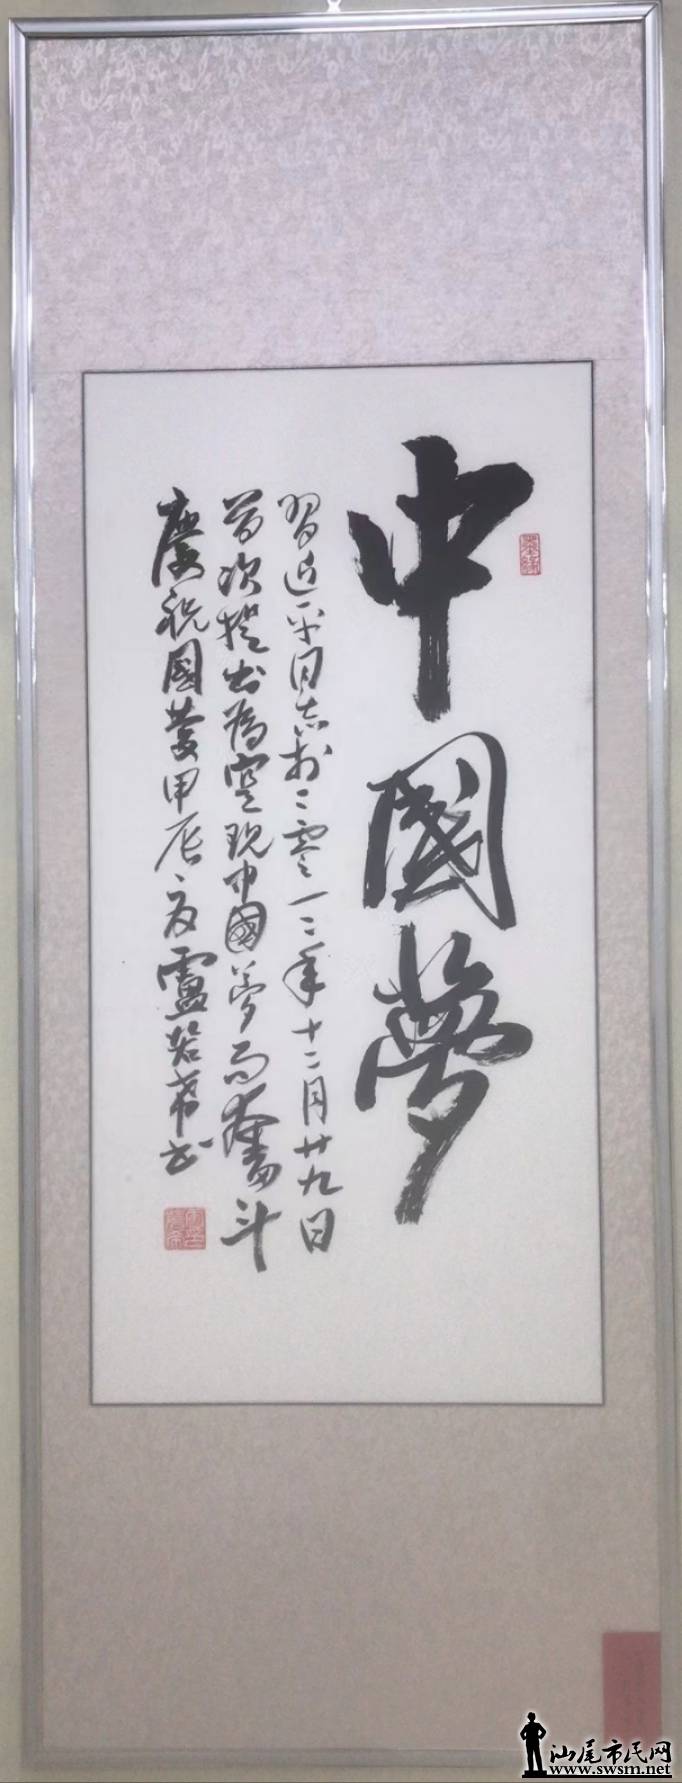 中國夢
習近平同志於二零一二年十二月廿九日
首次提出為實现中國夢而奮斗
慶祝國慶甲辰年夏盧若希书
汕尾市民网
www.swsm.net